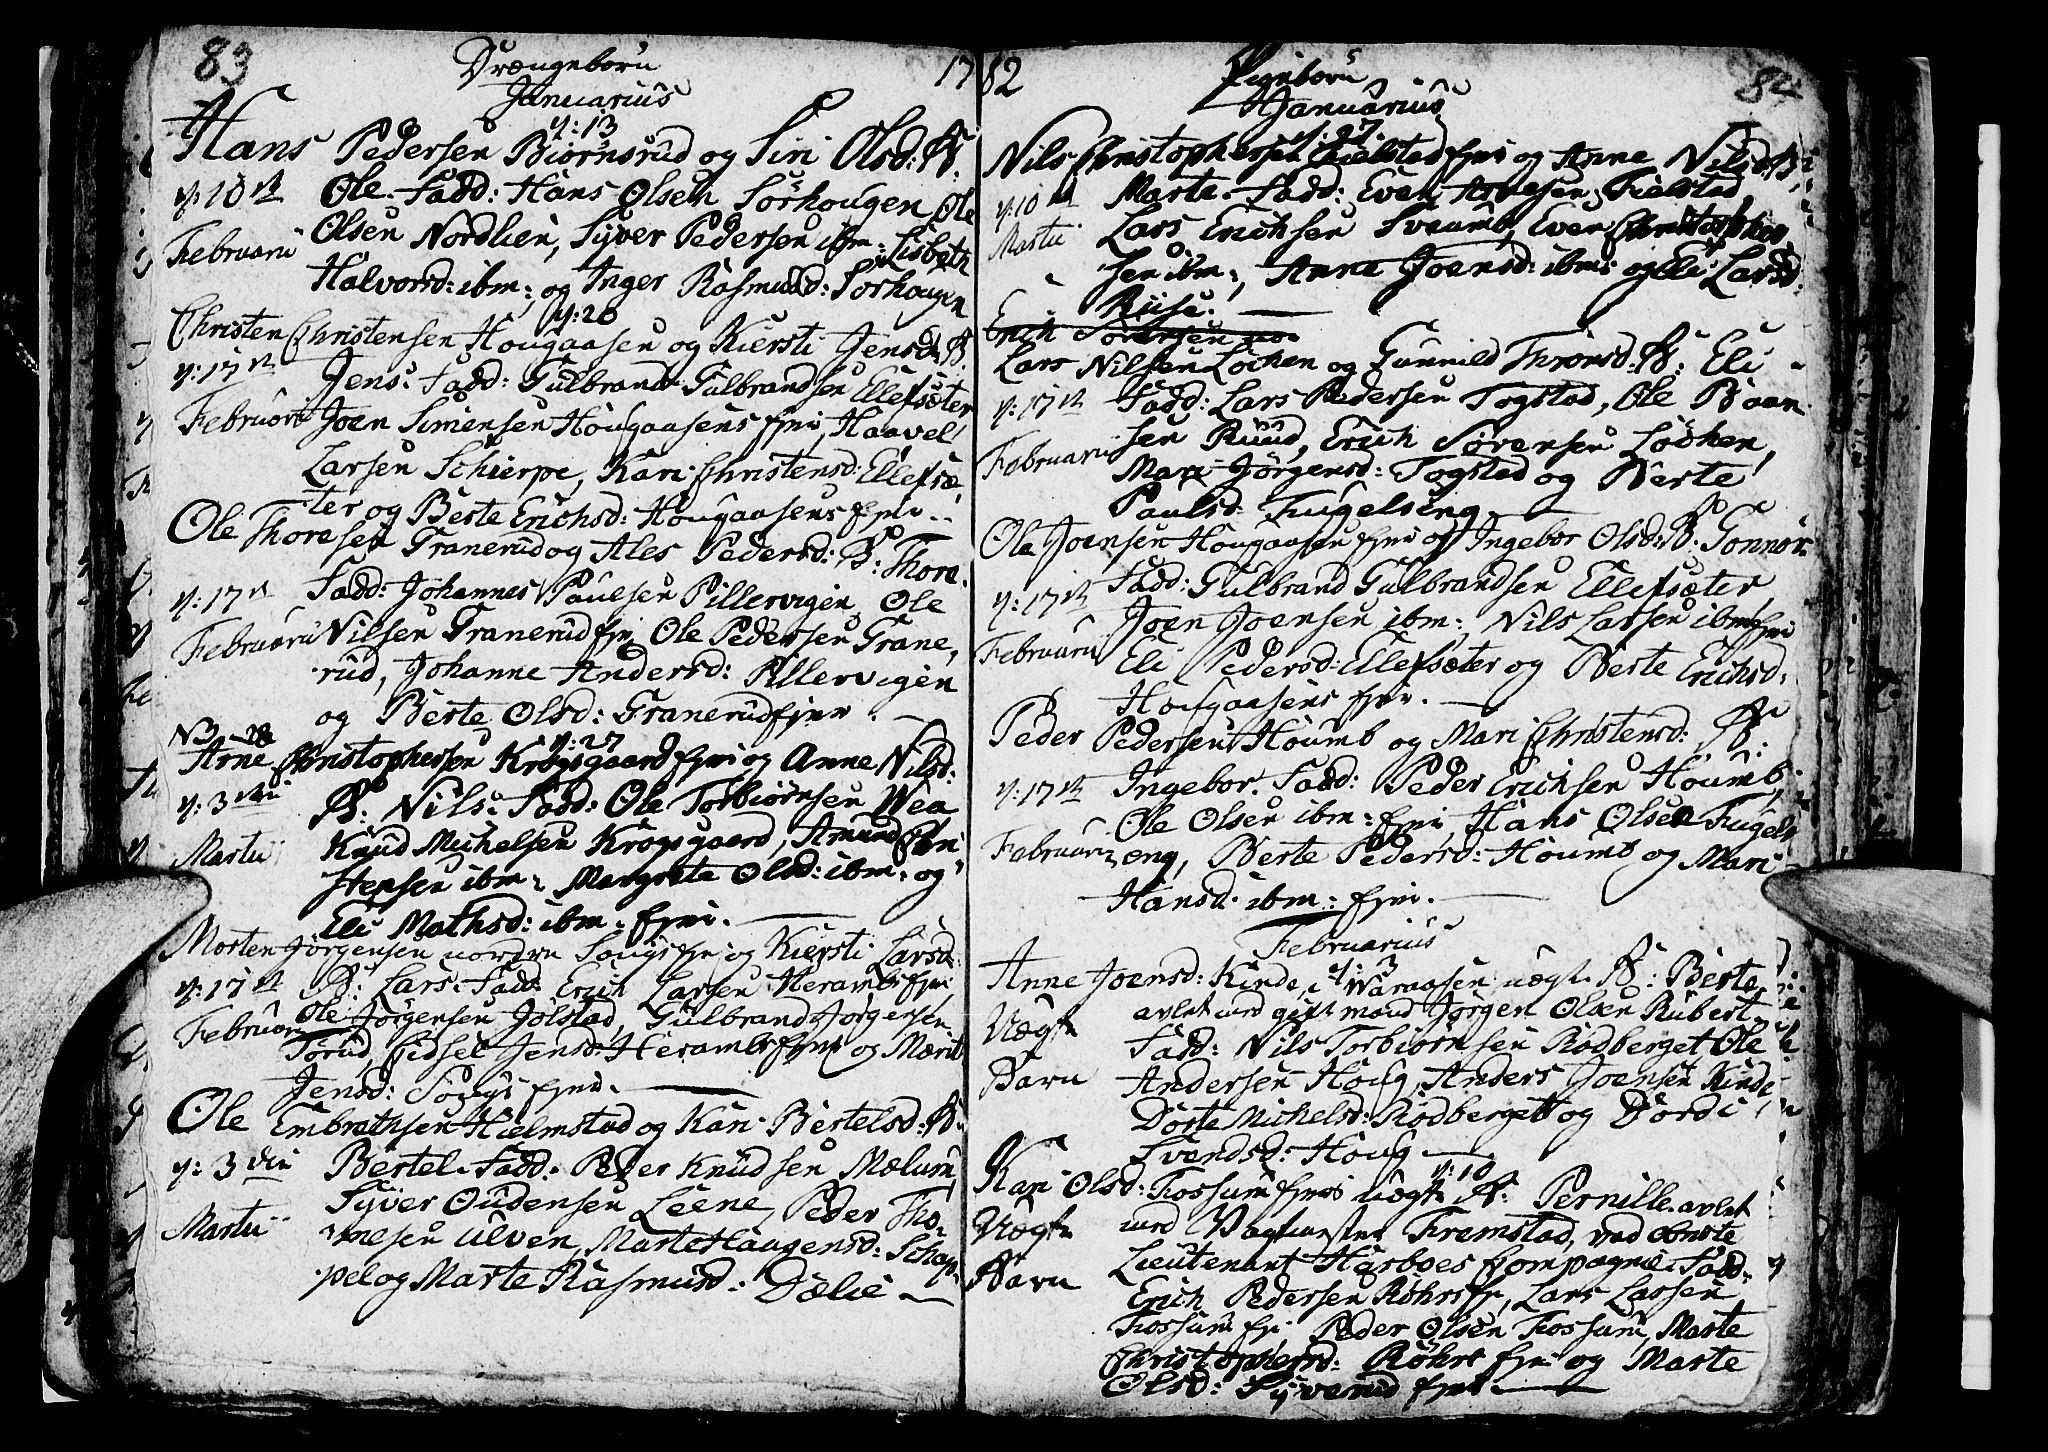 83 Drængebørn 17
Januarius
d: 13
Hans Pedersen Biørnsrud og Siri Olsd: B:
d: 10de Ole. Fadd: Hans Olsen Sørhougen Ole
Februarii Olsen Nordlien, Syver Pedersen ibm: Lisbeth
Halvorsd: ibm: og Inger Rasmusd: Sørhougen
d: 20
Christen Christensen Hougaasen og Kiersti Jensd: B.
d: 17de Jens. Fadd: Gulbrand Gulbrandsen Ellefsæter
Februarii Joen Simensen Hougaasens Ejer, Haavel
Larsen Schierpe, Kari Christensd: Ellefsæ,
ter og Berte Erichsd: Hougaasens Ejer.
Ole Thoresen Granerud og Ales Pedersd: B: Thore.
d: 17de Fadd: Johannes Paulsen Pillervigen, Ole
Februarii Nilsen Granerud Ejer Ole Pedersen Grane,
rud, Johanne Andersd: Pillervigen
og Berte Olsd: Granerud Ejer.
N3 28 d: 27
Arne Christophersen Krogsgaard Ejer og Anne Nilsd:
d: 3die B: Nils. Fadd: Ole Torbiørnsen Wea
Martii Knud Michelsen Krogsgaard, Amund Chri
stensen ibm: Margrete Olsd: ibm: og
Eli Mathsd: ibm: Ejer.
Morten Jørgensen nordre Sougs Ejer og Kiersti Larsd:
d: 17de B: Lars. Fadd: Erich Larsen Herambs Ejer
Februarii Ole Jørgensen Jølstad, Gulbrand Jørgensen
Torud, Sidsel Jensd: Herambs Ejer og Marit
Jensd: Sougs Ejer.
Ole Embrethsen Hielmstad og Kari Bertelsd: B:
d: 3die Bertel. Fadd: Peder Knudsen Mælum,
Martii Syver Oudensen Leene, Peder Tho,
mesen Ulven, Marte Haagensd: Schap,
pel og Marte Rasmusd: Dælie
82 Pigebørn 84
Januarius
d: 27.
Nils Christophersen Fielstad Ejer og Anne Nilsd: B:
d: 10de Marte. Fadd: Even Arnesen Fielstad
Martii Lars Erichsen Svaumb, Even Christopher
sen ibm:, Anne Joensd: ibm: og Eli Larsd:
Riise.
Erich Sørensen og
Lars Nilsen Løchen og Gunnild Thronsd: B: Eli
d: 17de Fadd: Lars Pedersen Togstad, Ole Boan
Februarii sen Ruud, Erich Sørensen Løchen,
Mari Jørgensd: Togstad og Berte
Paulsd: Fugelseng
Ole Joensen Hougaasen Ejer og Ingebor Olsd: B: Gonnor
d: 17de Fadd: Gulbrand Gulbrandsen Ellefsæter
Februarii Joen Joensen ibm: Nils Larsen ibm Ejer
Eli Pedersd: Ellefsæter og Berte Erichsd:
Hougaasens Ejer.
Peder Pedersen Houmb og Mari Christensd: B:
d: 17de Ingebor. Fadd: Peder Erichsen Houmb,
Februarii Ole Olsen ibm: Ejer, Hans Olsen Fugels
eng, Berte Pedersd: Houmb og Mari
Hansd: ibm: Ejer.
Februarius
d: 3
Anne Joensd: Kinde, i Waraasen uægt. B: Berte
Uægte avlet med gift mand Jørgen Olsen Rubert.
Fadd: Nils Torbiørnsen Rødberget Ole
Barn Andersen Houg, Anders Joensen Kinde
Dorte Michelsd: Rødberget og Dordi
Svendsd: Houg
d: 10
Kari Olsd: Fossum Ejer uægte B: Pernille avlet
Uægte med Vagtmester Fremstad, ved Obriste
Barn Lieutenant Harboes Compagnie. Fadd:
Erich Pedersen Røhrs Ejer, Lars Larsen
Fossum Ejer Peder Olsen Fossum, Marte
Christophersd: Røhrs Ejer og Marte
Olsd: Syverud Ejer